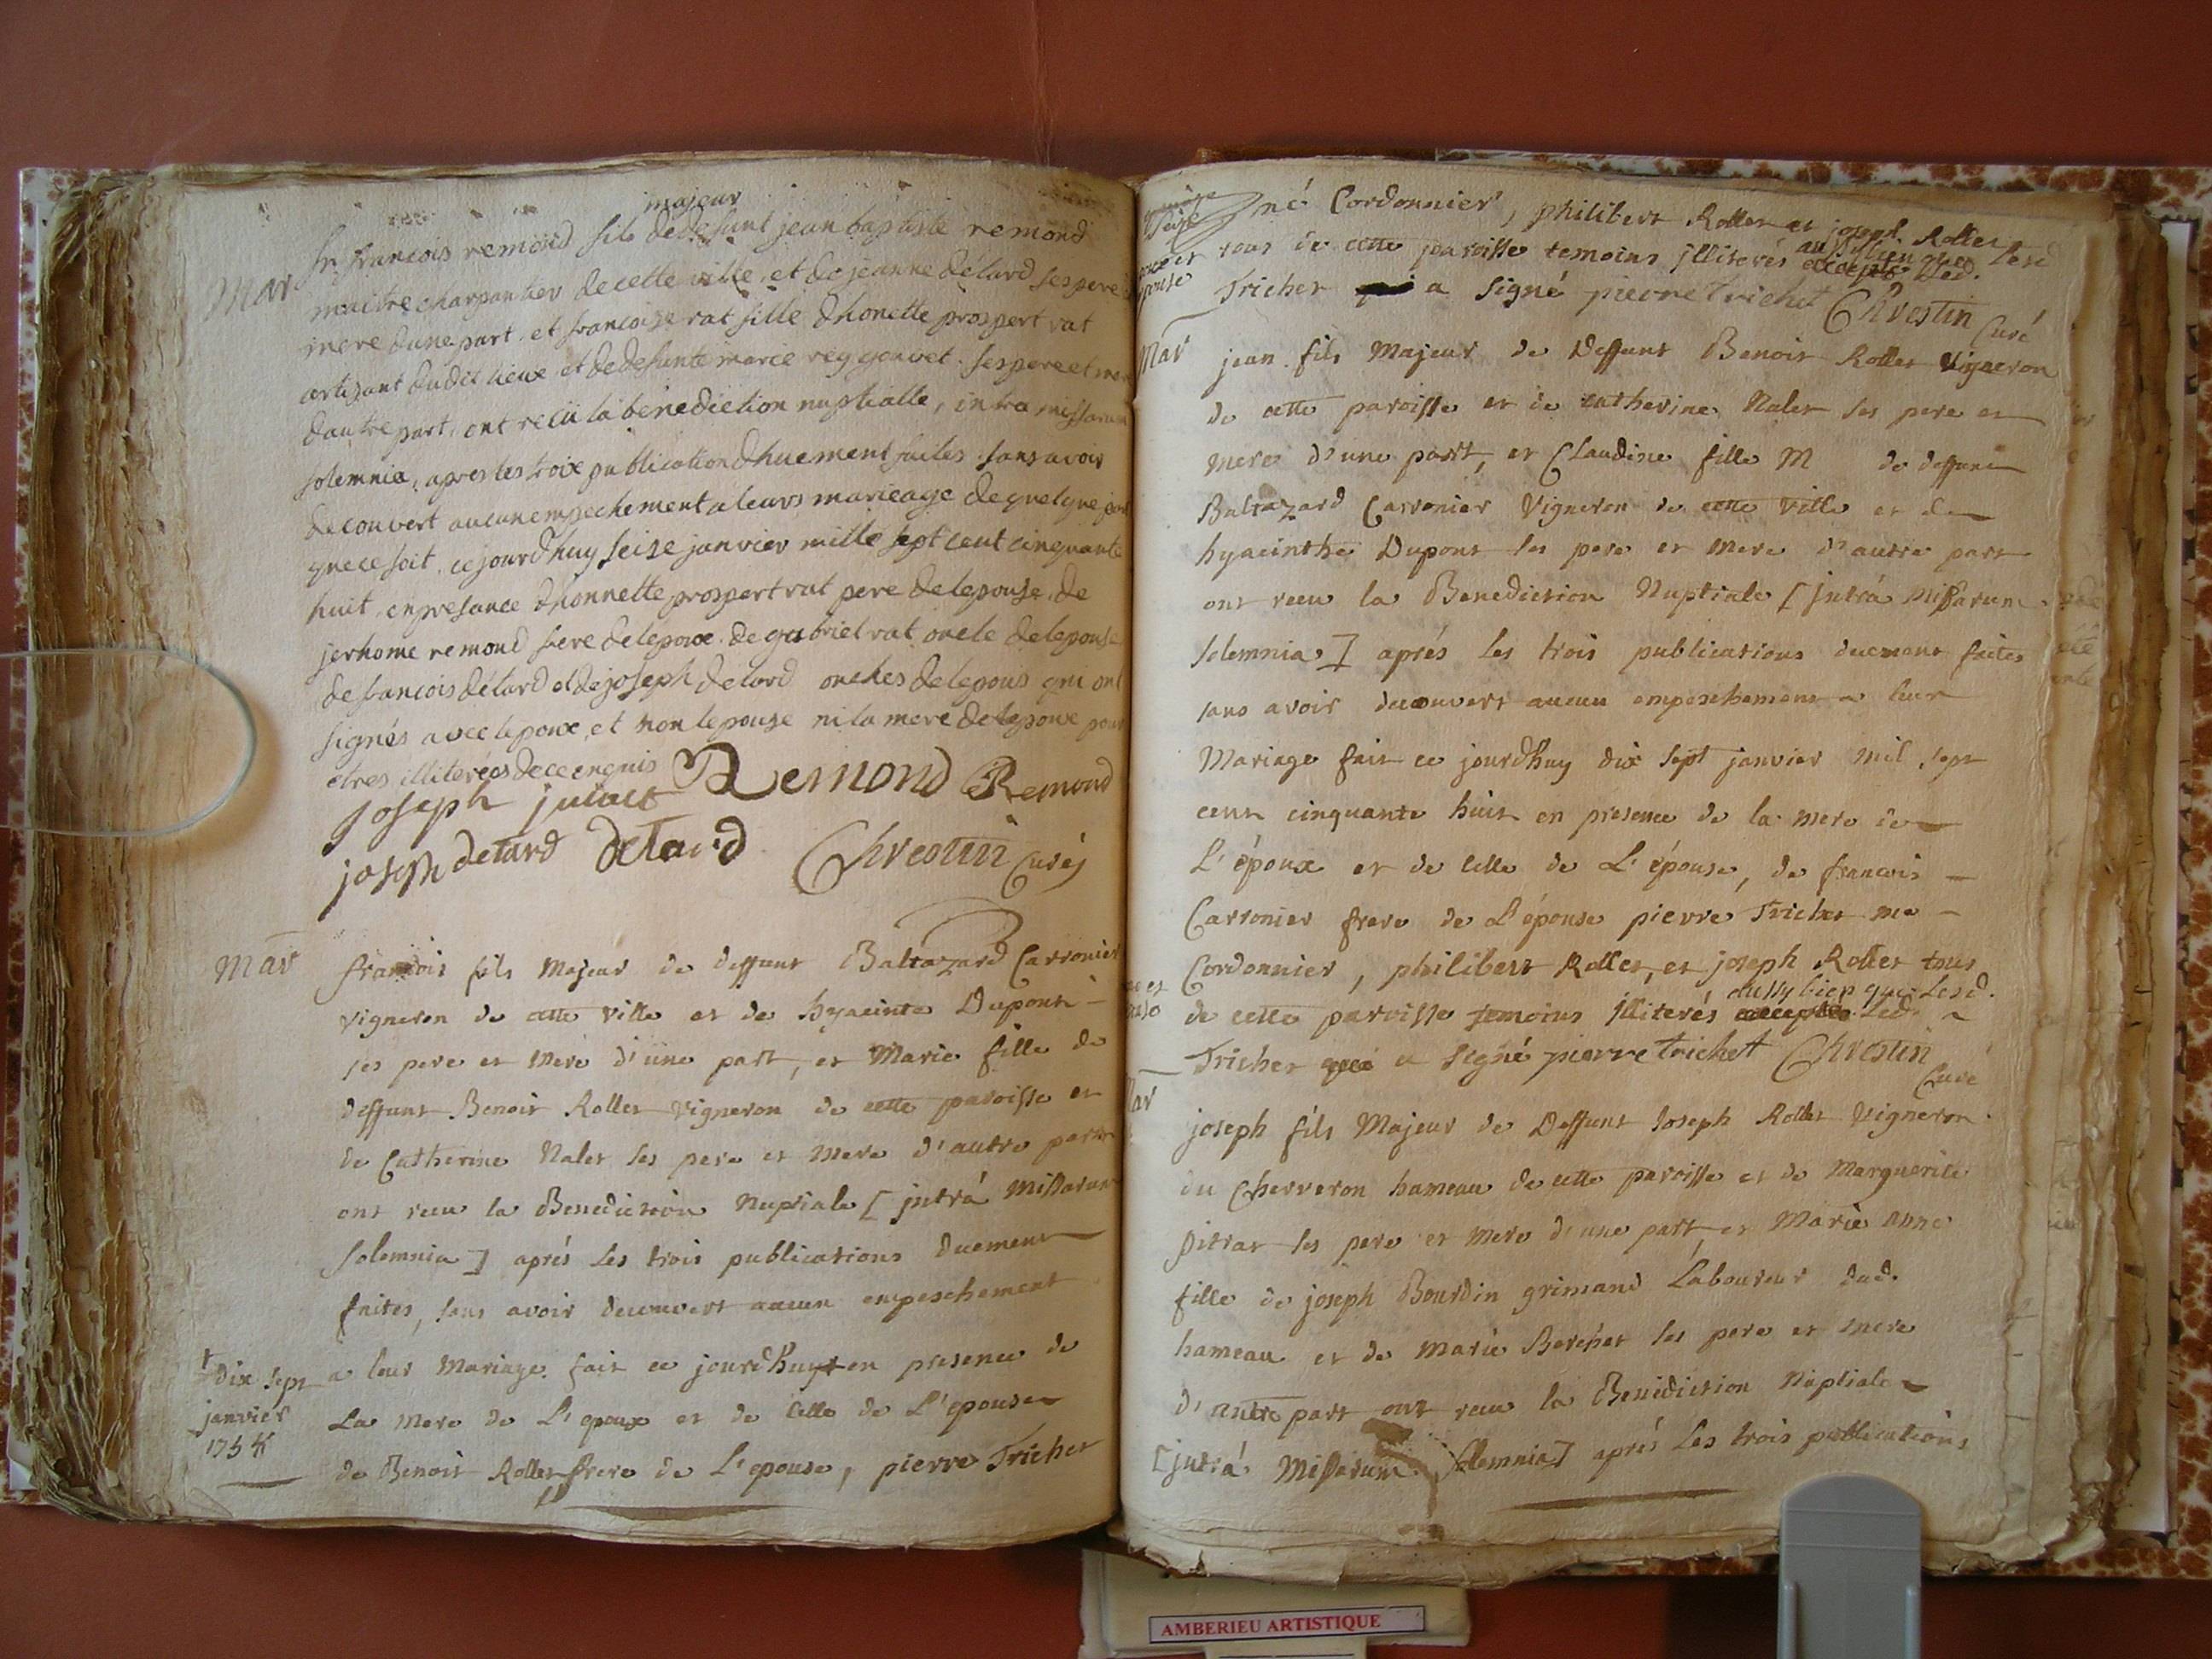 majeur
Mar
sr francois remond fils de defunt jean baptiste remond
maitre charpantier de cette ville, et de jeanne détard ses pere
mere dune part. et francoise rat fille dhonette prospert rat
artisant dudit lieux et de defunte marie reygonvet. ses pere et mere
dautre part, ont recü la benediction nuptialle, intra missarum
solemnia, apres les troix publication dhuement faites. sans avoir
decouvert aucun empechement a leurs marieage de quelque
que ce soit. cejourdhuy seise janvier mille sept cent cinquante
huit. en presance dhonnette prospert rat pere de lepouse. de
jerhome remond frere de lepoux. de gabriel rat oncle de lepouse
de francois détard et de joseph detard oncles de lepouis qui ont
signés avec lepoux, et non lepouse ni la mere de lepoux pour
etres illiterées de ce enquis Remond Remond
joseph
joseph detard detard Chrestin Curéj
Mar
francois fils Majeur de deffunt Baltazard Carronier
vigneron de cette ville et de hyacinte Dupont
ses pere et mere d'une part, et Marie fille de
deffunt Benoit Rollet vigneron de cette paroisse et
de Catherine Nalet ses pere et mere d'autre part
ont receu la Benediction Nuptiale [ jntrá Missarum
solemnia ] aprés les trois publications duement
faites, sans avoir decouvert aucun empeschement
a leur Mariage. fait ce jourdhuy + en presence de
+ Dix sept
janvier
1758
La mere de L'epoux et de celle de L'epouse
de Benoit Rollet frere de L'epouse, pierre Trichet
mé Cordonnier, philibert Rollet et joseph Rollet
tous de cette paroisse temoins jlliterés aussi bien que Lesd.
époux et
épouse
Trichet a signé pierre trichet Chrestin
Curé
Mar
jean fils Majeur de Deffunt Benoit Rollet vigneron
de cette paroisse et de catherine Nalet ses pere et
mere d'une part, et Claudine fille M de deffunt
Baltazard Carronier Vigneron de cette ville et de
hyacinthe Dupont ses pere et mere d'autre part
ont receu la Benediction Nuptiale [ jntrá Missarum
solemnia ] aprés les trois publications duement faites
sans avoir decouvert aucun empeschement a leur
Mariage fait ce jourdhuy dix sept janvier mil sept
cent cinquante huit en presence de la mere de
L'époux et de celle de L'épouse, de francois
Carronier frere de L'épouse pierre Trichet me
Cordonnier, philibert Rollet, et joseph Rollet tous
de cette paroisse temoins jlliterés aussy bien que Lesd.
Trichet a signé pierre trichett Chrestin
Curé
Mar
joseph fils Majeur de Deffunt Joseph Rollet Vigneron
du Cherveron hameau de cette paroisse et de Marguerite
pitrat ses pere et mere d'une part, et Marie anne
fille de joseph Bourdin grimand Laboureur dud.
hameau et de Marie Berchet ses pere et mere
d'autre part ont receu la Benediction Nuptiale
[ jntrá Missarum solemnia ] aprés Les trois publications
AMBERIEU ARTISTIQUE